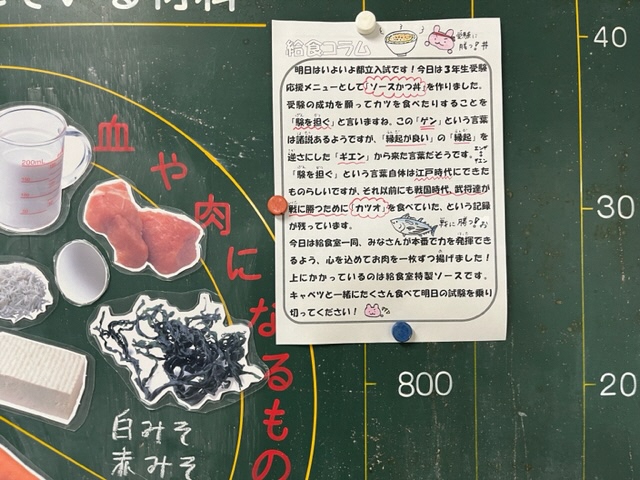 ている材料
給食コラム
受験に
勝つ丼
明日はいよいよ都立入試です！今日は３年生受験
応援メニューとして「ソースかつ丼」を作りました。
受験の成功を願ってカツを食べたりすることを
「験を担ぐ」と言いますね。この「ゲン」という言葉
は諸説あるようですが、「縁起が良い」の「縁起」を
逆さにした「ギエン」から来た言葉だそうです。
「験を担ぐ」という言葉自体は江戸時代にできた
ものらしいですが、それ以前にも戦国時代、武将達が
戦に勝つために「カツオ」を食べていた、という記録
が残っています。
戦に勝つお
今日は給食室一同、みなさんが本番で力を発揮でき
るよう、心を込めてお肉を一枚ずつ揚げました！
上にかかっているのは給食室特製ソースです。
キャベツと一緒にたくさん食べて明日の試験を乗り
切ってください！
血や肉になるもの
200mL
白みそ
赤みそ
40
30
800
20